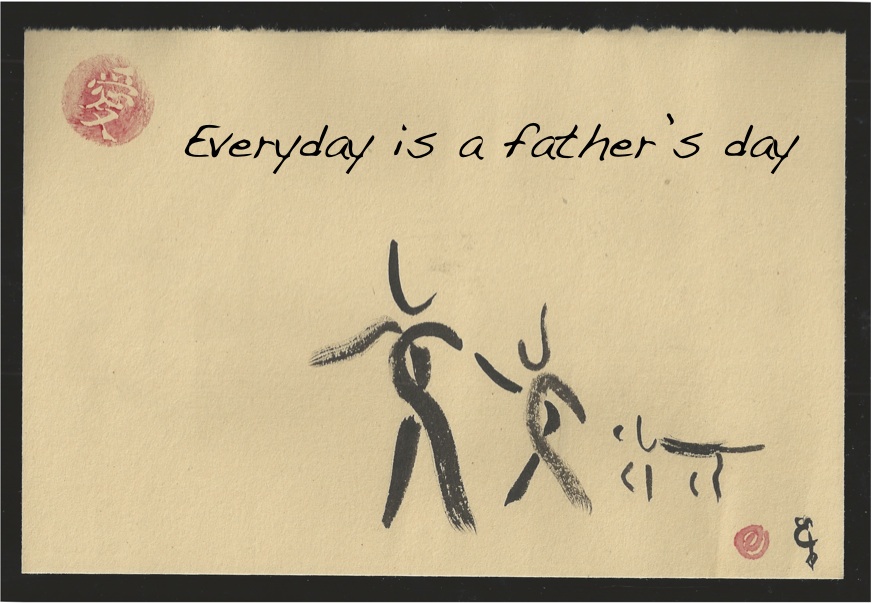 愛
Everyday is a father's day